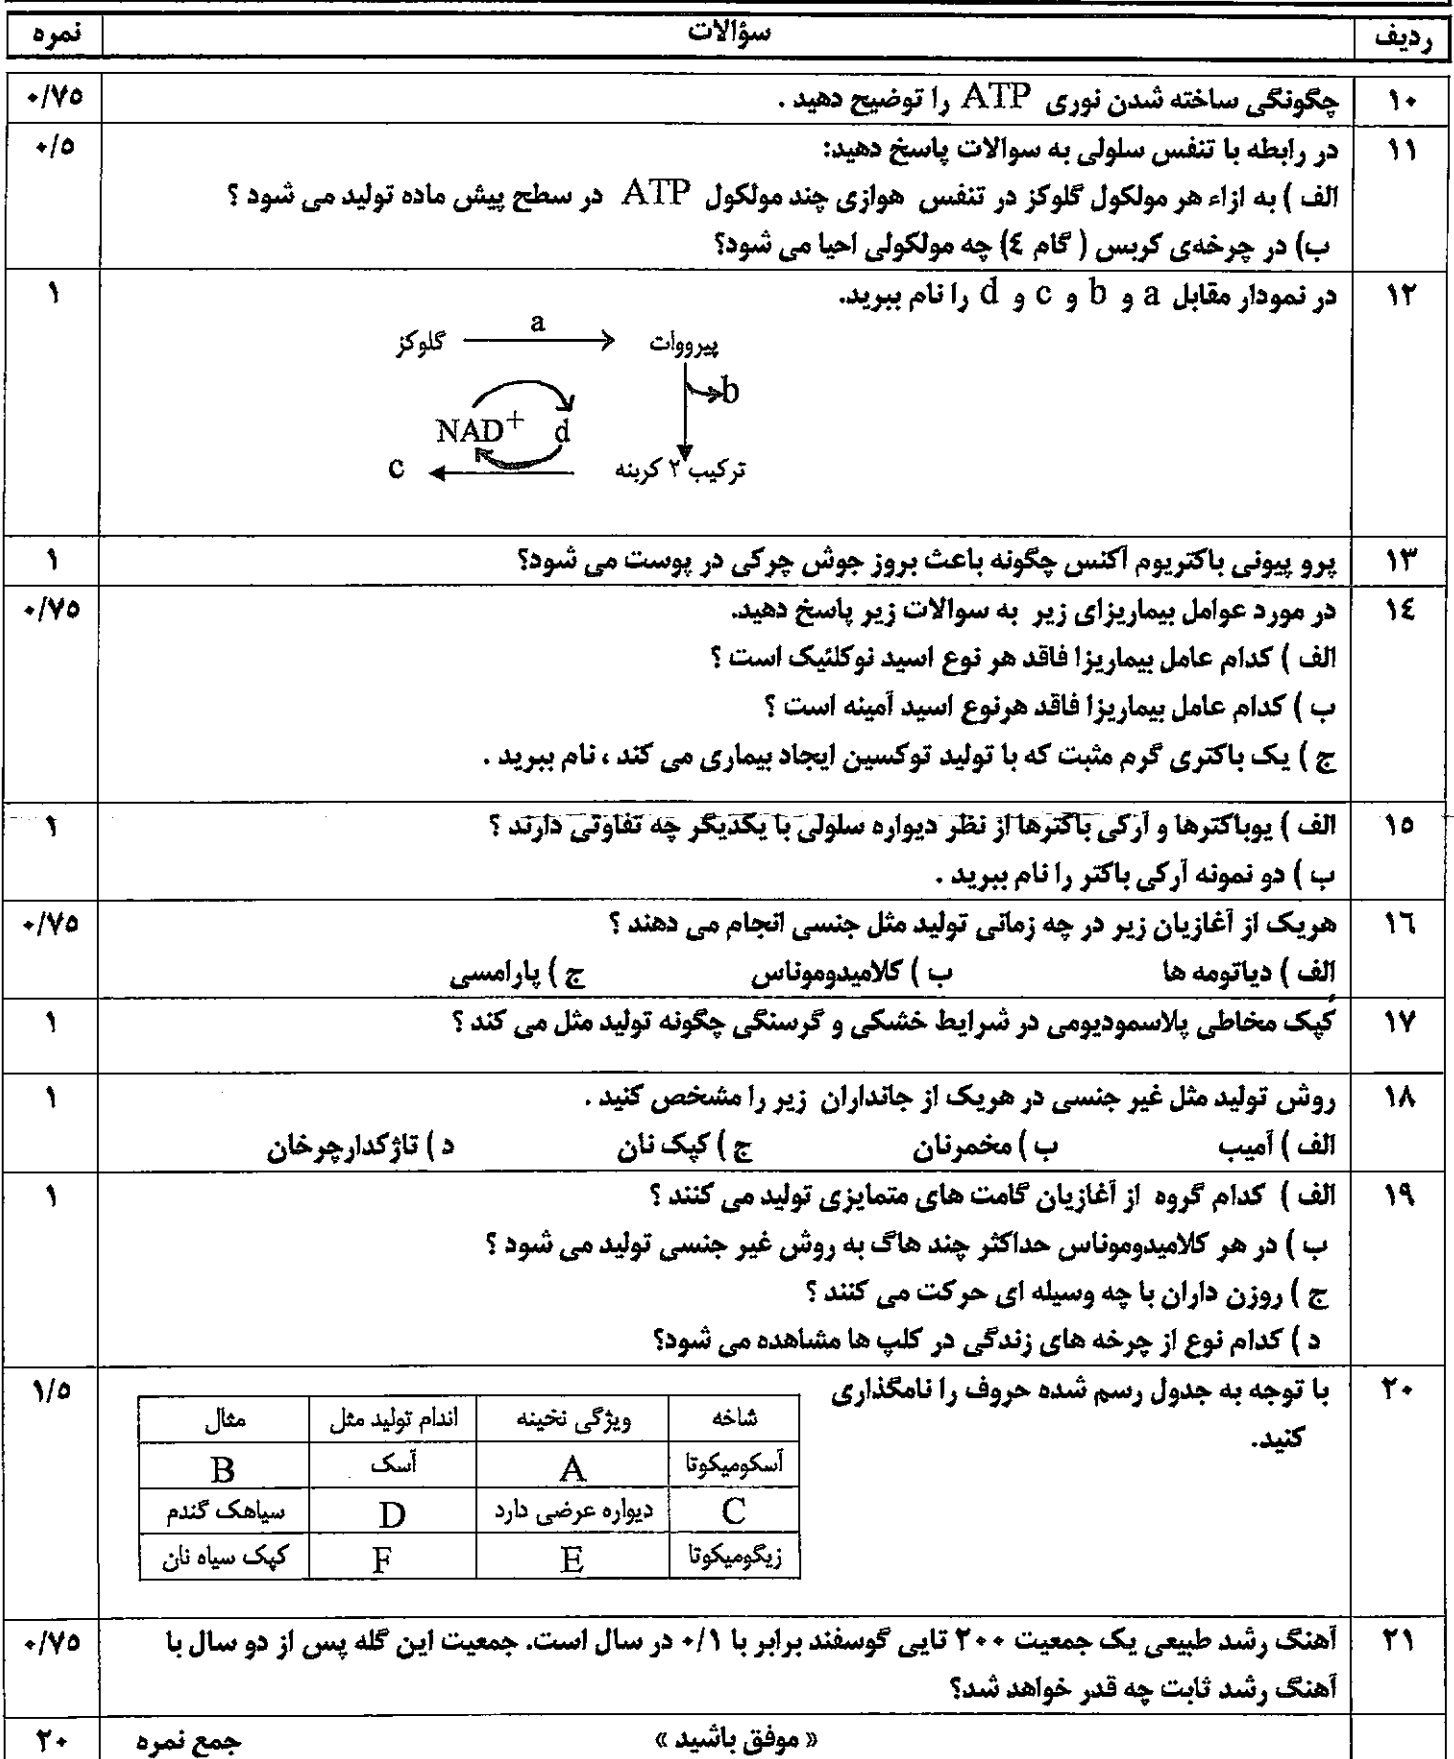 ردیف سؤالات نمره
۱۰ چگونگی ساخته شدن نوری ATP را توضیح دهید . ۰/۷۵
۱۱ در رابطه با تنفس سلولی به سوالات پاسخ دهید: ۰/۵
الف ) به ازاء هر مولکول گلوکز در تنفس هوازی چند مولکول ATP در سطح پیش ماده تولید می شود ؟
ب) در چرخه‌ی کربس ( گام ٤) چه مولکولی احیا می شود؟
۱۲ در نمودار مقابل a و b و c و d را نام ببرید. ۱
گلوکز a پیرووات
b
NAD+ d
c ترکیب ۲ کربنه
۱۳ پرو پیونی باکتریوم آکنس چگونه باعث بروز جوش چرکی در پوست می شود؟ ۱
۱٤ در مورد عوامل بیماریزای زیر به سوالات زیر پاسخ دهید. ۰/۷۵
الف ) کدام عامل بیماریزا فاقد هر نوع اسید نوکلئیک است ؟
ب ) کدام عامل بیماریزا فاقد هرنوع اسید آمینه است ؟
ج ) یک باکتری گرم مثبت که با تولید توکسین ایجاد بیماری می کند ، نام ببرید .
۱٥ الف ) یوباکترها و آرکی باکترها از نظر دیواره سلولی با یکدیگر چه تفاوتی دارند ؟ ۱
ب ) دو نمونه آرکی باکتر را نام ببرید .
۱٦ هریک از آغازیان زیر در چه زمانی تولید مثل جنسی انجام می دهند ؟ ۰/۷۵
الف ) دیاتومه ها ب ) کلامیدوموناس ج ) پارامسی
۱۷ کپک مخاطی پلاسمودیومی در شرایط خشکی و گرسنگی چگونه تولید مثل می کند ؟ ۱
۱۸ روش تولید مثل غیر جنسی در هریک از جانداران زیر را مشخص کنید . ۱
الف ) آمیب ب ) مخمرنان ج ) کپک نان د ) تاژکدارچرخان
۱۹ الف ) کدام گروه از آغازیان گامت های متمایزی تولید می کنند ؟ ۱
ب ) در هر کلامیدوموناس حداکثر چند هاگ به روش غیر جنسی تولید می شود ؟
ج ) روزن داران با چه وسیله ای حرکت می کنند ؟
د ) کدام نوع از چرخه های زندگی در کلپ ها مشاهده می شود؟
۲۰ با توجه به جدول رسم شده حروف را نامگذاری ۱/۵
کنید.
شاخه ویژگی نخینه اندام تولید مثل مثال
آسکومیکوتا A آسک B
C دیواره عرضی دارد D سیاهک گندم
زیگومیکوتا E F کپک سیاه نان
۲۱ آهنگ رشد طبیعی یک جمعیت ۲۰۰ تایی گوسفند برابر با ۰/۱ در سال است. جمعیت این گله پس از دو سال با ۰/۷۵
آهنگ رشد ثابت چه قدر خواهد شد؟
« موفق باشید » جمع نمره ۲۰